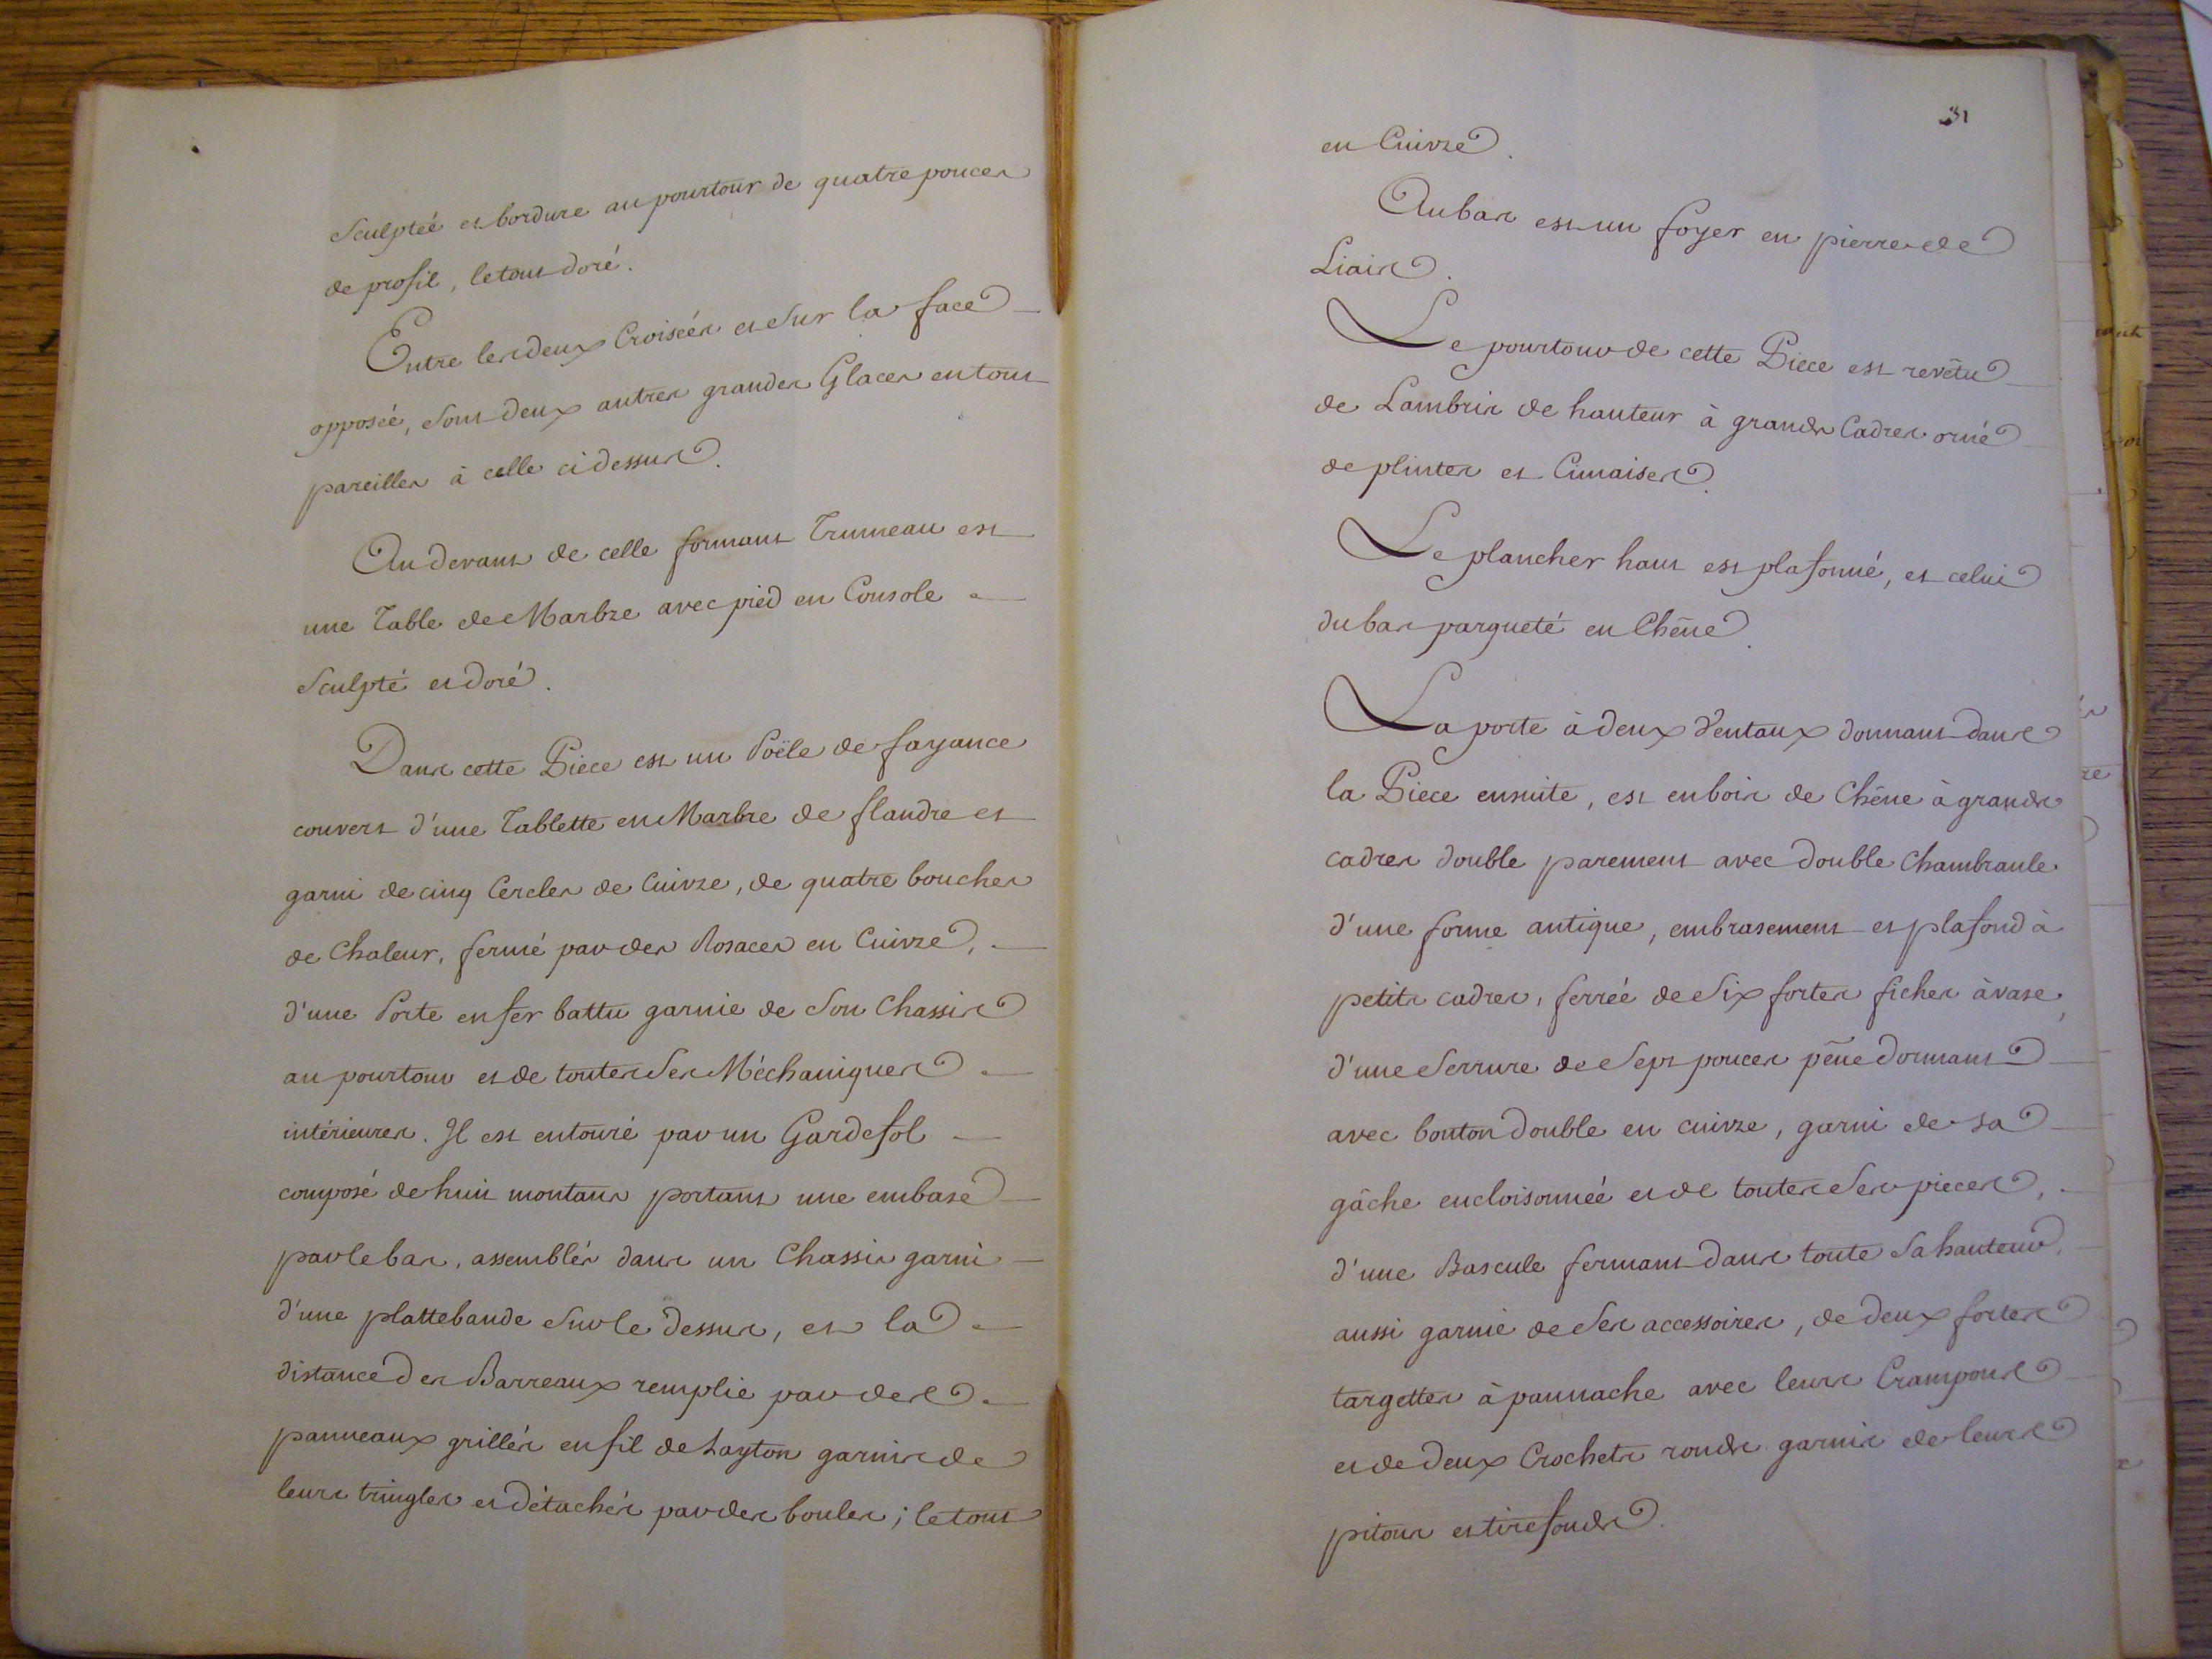 Sculptée et bordure au pourtour de quatre pouces
de profil, le tout doré.
Entre les deux Croisées et Sur la face
opposée, Sont deux autres grandes Glaces en tout
pareilles à celle ci dessus.
Au devant de celle formant Trumeau est
une Table de Marbre avec pied en Console
Sculpté et doré.
Dans cette Piece est un Poële de fayance
couvert d'une Tablette en Marbre de flandre et
garni de cinq Cercles de Cuivre, de quatre bouches
de Chaleur, fermé par des Rosaces en Cuivre,
d'une Porte en fer battu garnie de Son Chassis
au pourtour et de toutes Ses Méchaniques
intérieures. Il est entouré par un Gardefol
composé de huit montans portant une embase
par le bas, assemblés dans un Chassis garni
d'une plattebande Sur le dessus, et la
distance des Barreaux remplie par des
panneaux grillés en fil de Layton garnis de
leurs tringles et détachés par des boules ; le tout
31
en Cuivre.
Au bas est un foyer en pierre de
Liais.
Le pourtour de cette Piece est revêtu
de Lambris de hauteur à grands Cadres orné
de plintes et Cimaises.
Le plancher haut est plafonné, et celui
du bas parqueté en Chêne.
La porte à deux Ventaux donnant dans
la Piece ensuite, est en bois de Chêne à grands
cadres double parement avec double Chambranle
d'une forme antique, embrasement et plafond à
petits cadres, ferrée de Six fortes fiches à vase,
d'une Serrure de Sept pouces pêne dormant
avec bouton double en cuivre, garni de sa
gâche encloisonnée et de toutes Ses pieces,
d'une Bascule fermant dans toute Sa hauteur,
aussi garnie de Ses accessoires, de deux fortes
targettes à pannache avec leurs Crampons
et de deux Crochets ronds garnis de leurs
pitons et tirefonds.